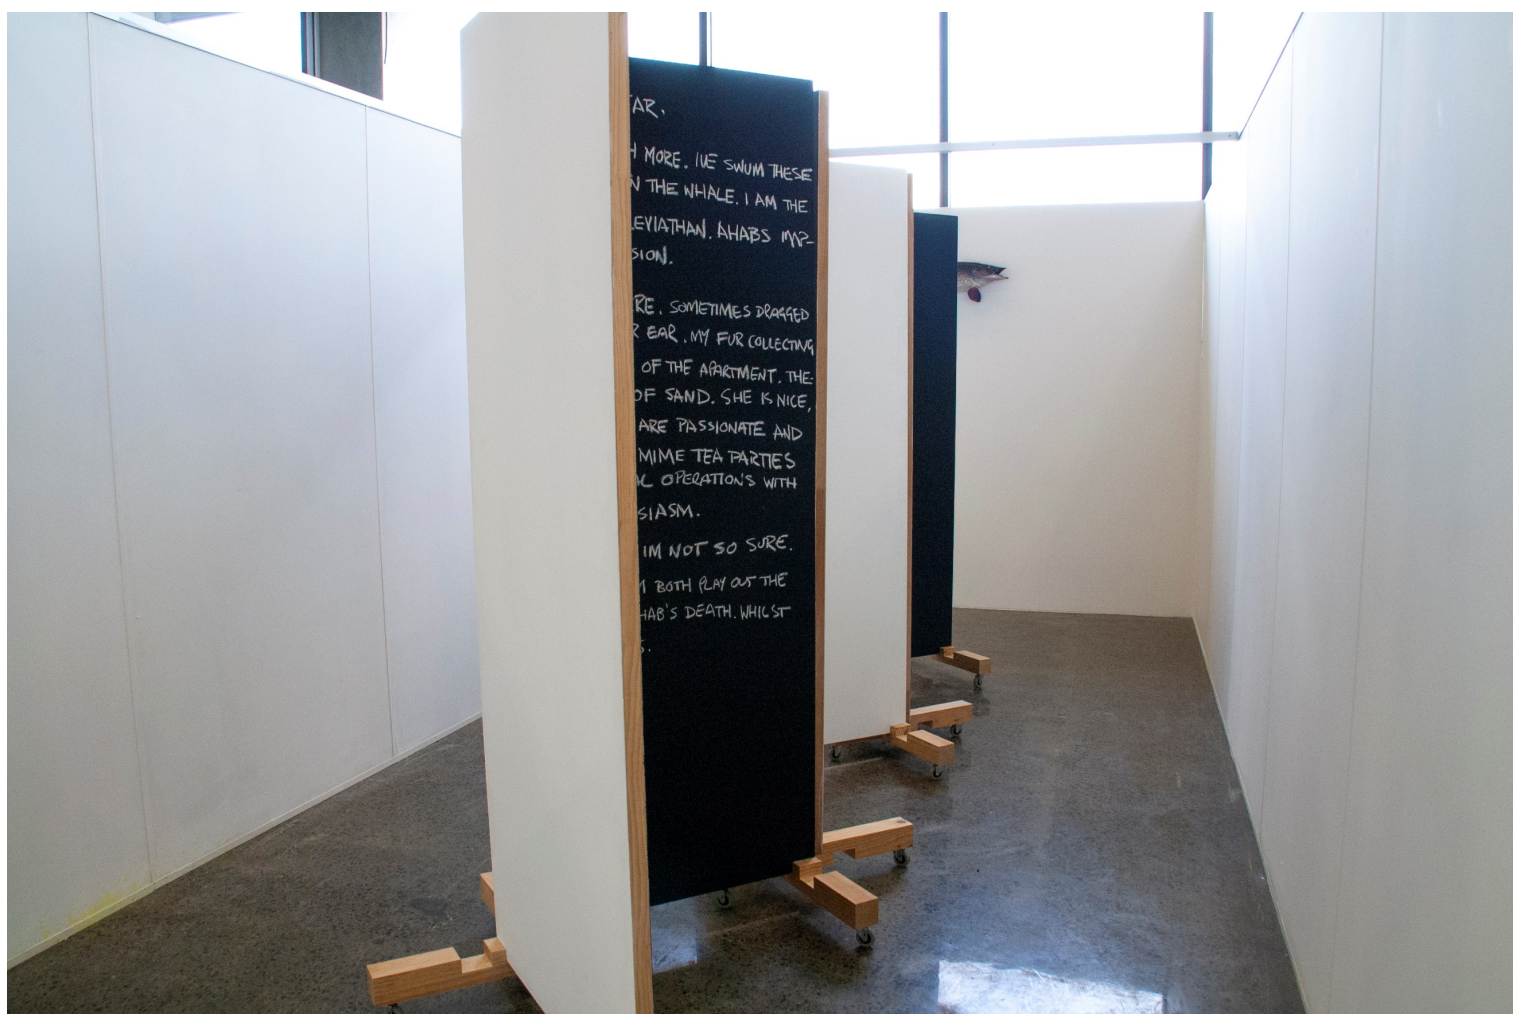 AR.
MORE. IVE SWUM THESE
N THE WHALE. I AM THE
LEVIATHAN. AHABS
SION.
RE. SOMETIMES DRAGGED
R EAR. MY FUR COLLECTING
OF THE APARTMENT. THE
OF SAND. SHE IS NICE,
ARE PASSIONATE AND
MIME TEA PARTIES
OPERATION'S WITH
SIASM.
IM NOT SO SURE.
BOTH PLAY OUT THE
HAB'S DEATH. WHILST